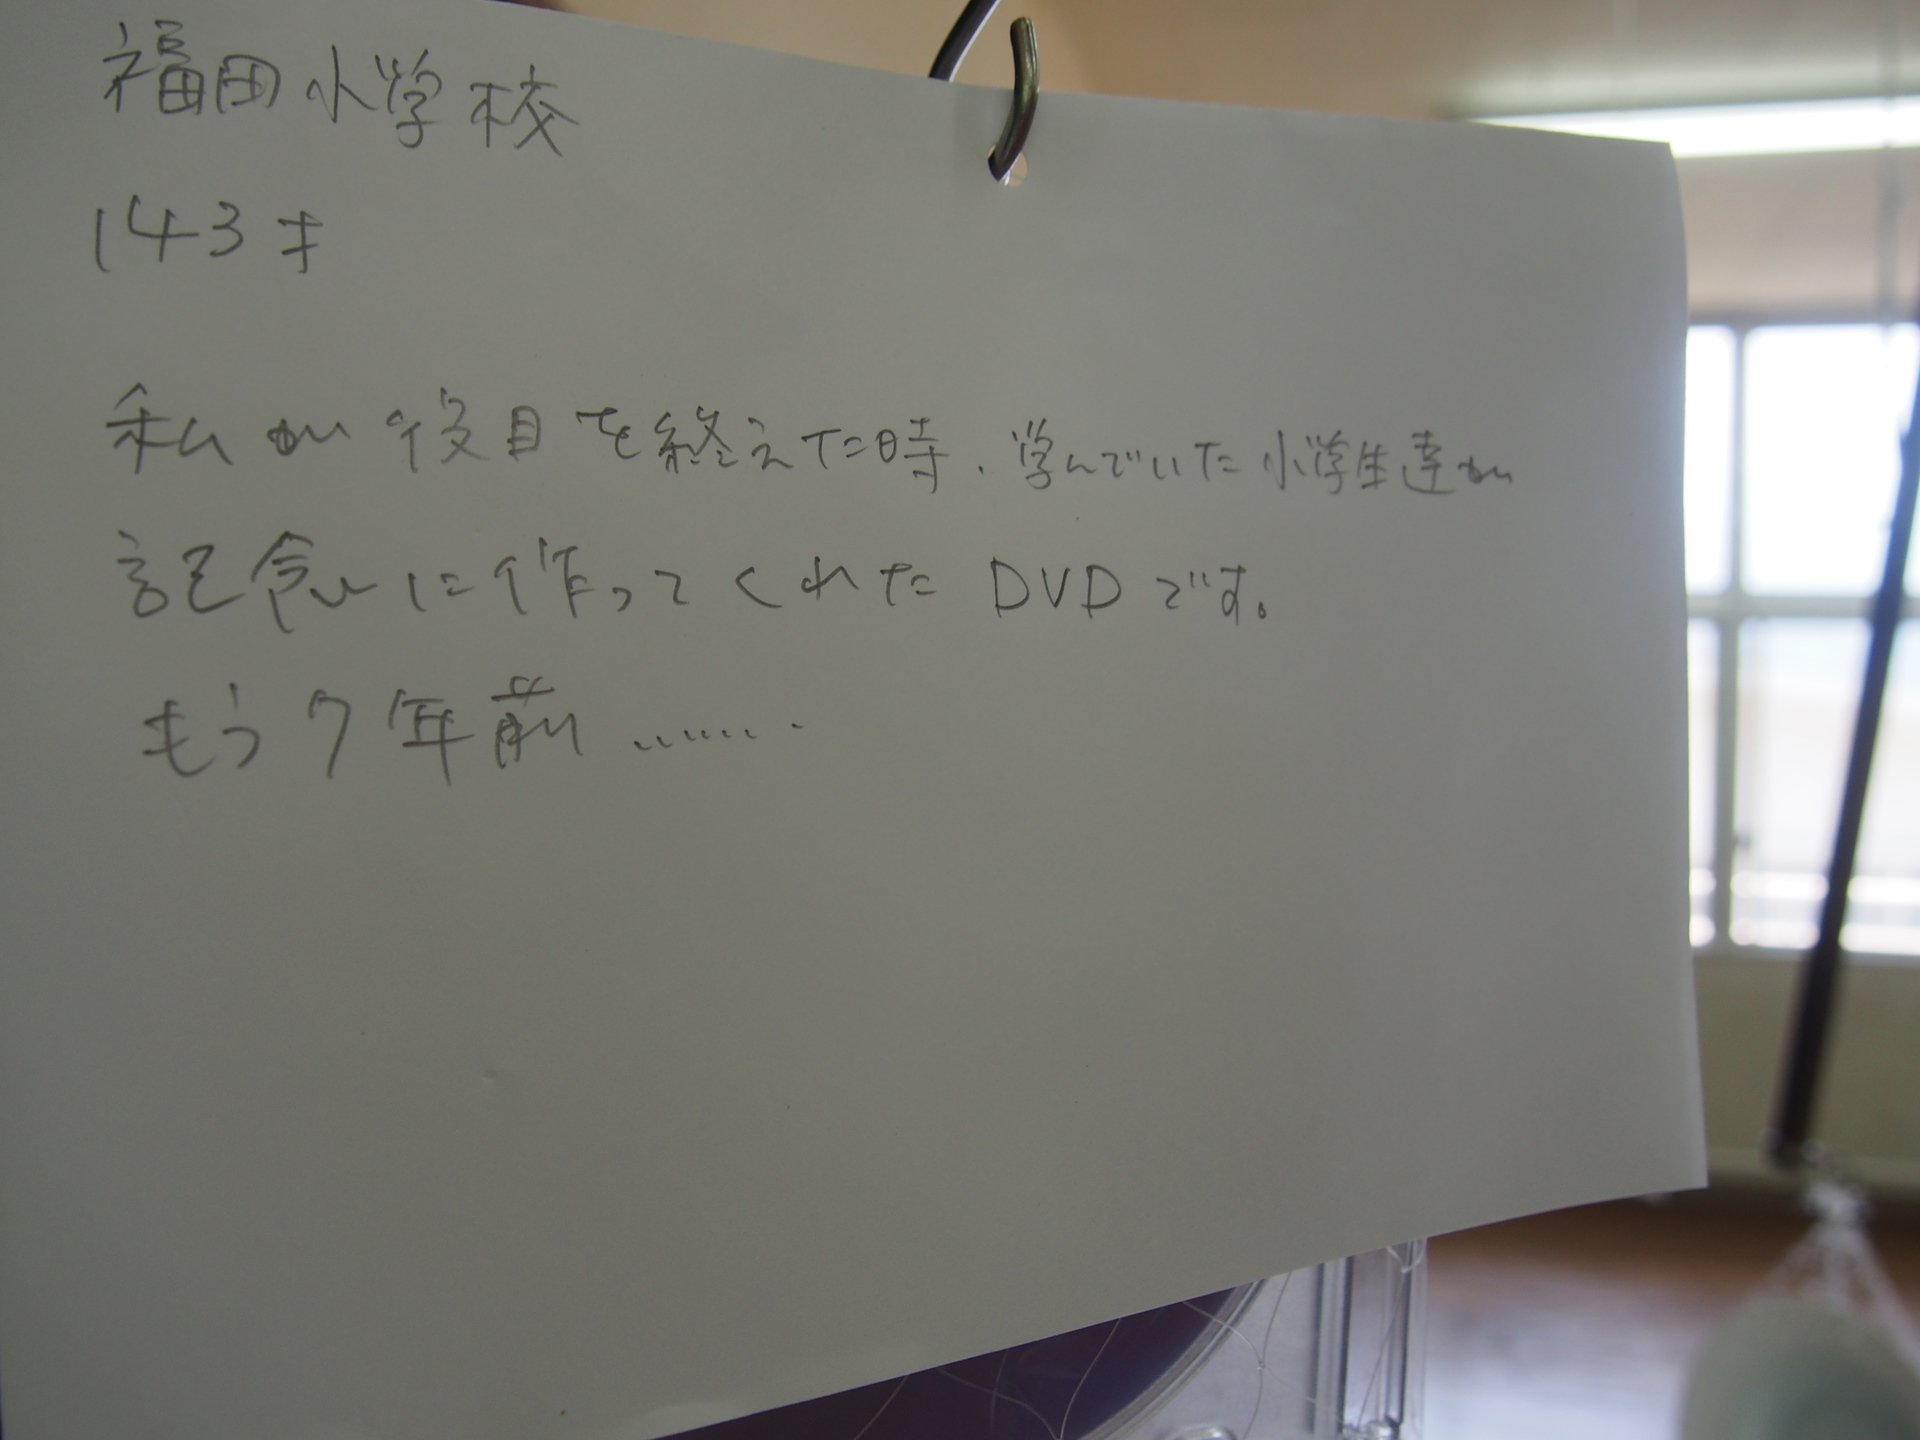 福田小学校
143才
私が役目を終えた時、学んでいた小学生達が
記念に作ってくれたDVDです。
もう7年前‥‥‥・